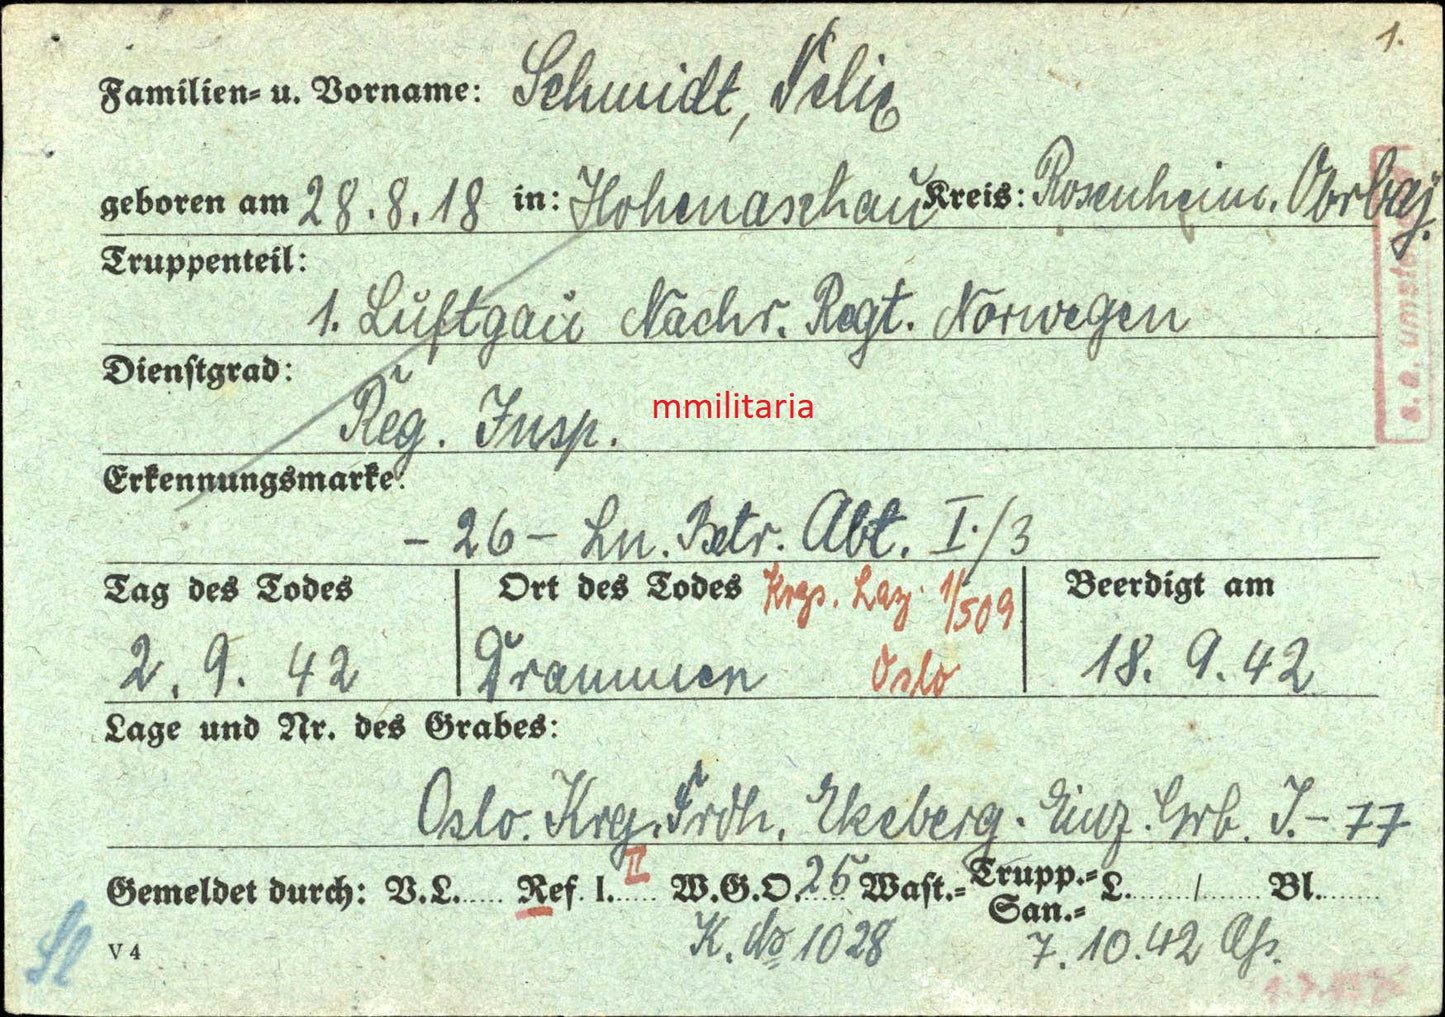 1.
Familien- u. Vorname: Schmidt, Felix
geboren am 28.8.18 in: Hohenaschau Kreis: Rosenheim. Obrbay.
Truppenteil:
1. Luftgau Nachr. Regt. Norwegen
Dienstgrad:
Reg. Insp.
mmilitaria
Erkennungsmarke:
- 26 - Ln. Betr. Abt. I./3
Tag des Todes Ort des Todes Krgs. Laz. 1/509 Beerdigt am
2. 9. 42 Drammen Oslo 18. 9. 42
Lage und Nr. des Grabes:
Oslo. Krg. Frdh. Ekeberg. Einz. Grb. I. - 77
Gemeldet durch: V.L..... Ref. I..... II W.G.O. 26 Wast.= Trupp.= San.= L......../........ Bl........
V 4 K. 1028 7. 10. 42